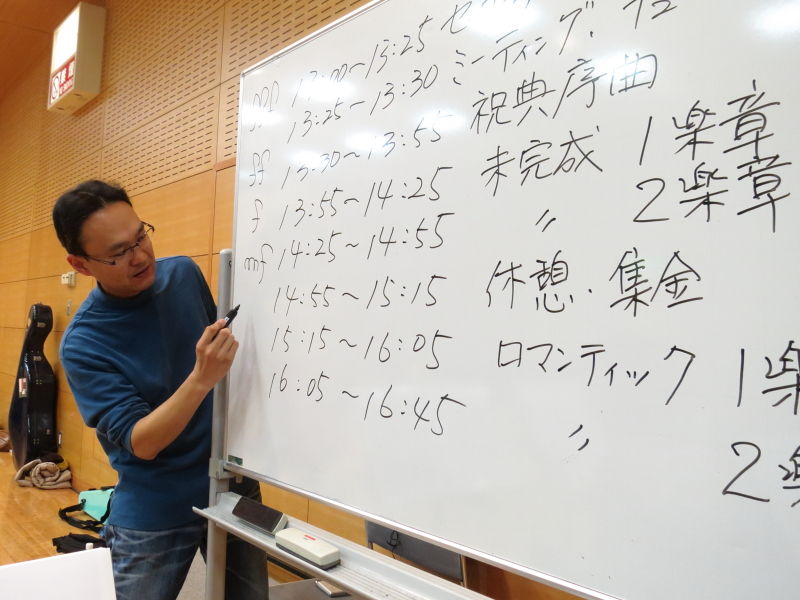 13:00～13:25
13:25～13:30 ミーティング.
ff 13:30～13:55 祝典序曲
f 13:55～14:25 未完成 1楽章
mf 14:25～14:55 〃 2楽章
14:55～15:15 休憩・集金
15:15～16:05 ロマンティック 1楽
16:05～16:45 〃 2楽